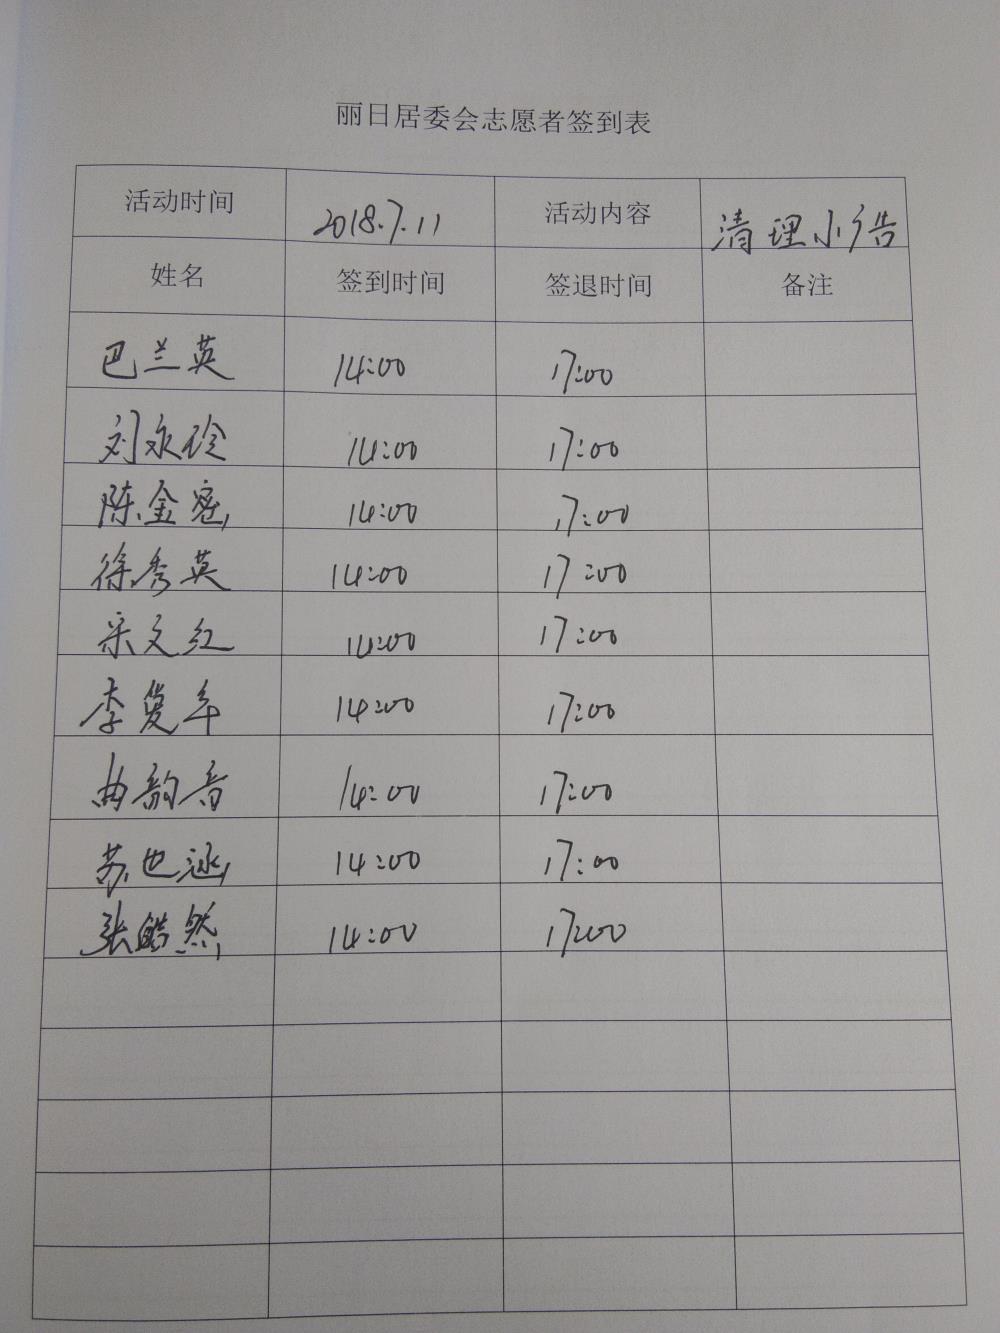 丽日居委会志愿者签到表
活动时间 2018.7.11 活动内容 清理小广告
姓名 签到时间 签退时间 备注
巴兰英 14:00 17:00
刘永玲 14:00 17:00
陈金 14:00 17:00
徐秀英 14:00 17:00
宋文红 14:00 17:00
李复年 14:00 17:00
曲韵音 14:00 17:00
苏也涵 14:00 17:00
张皓然 14:00 17:00